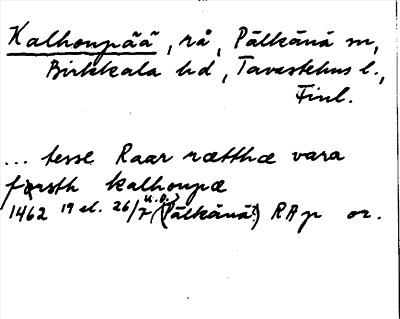 Kalhoupää, rå, Pälkänä sn,
Birkkala hd, Tavastehus l.,
Finl.
... tesse Raar rætthæ vara
førsth kalhoupæ
1462 19 el. 26/7 u.o. (Pälkänä?) RAp or.